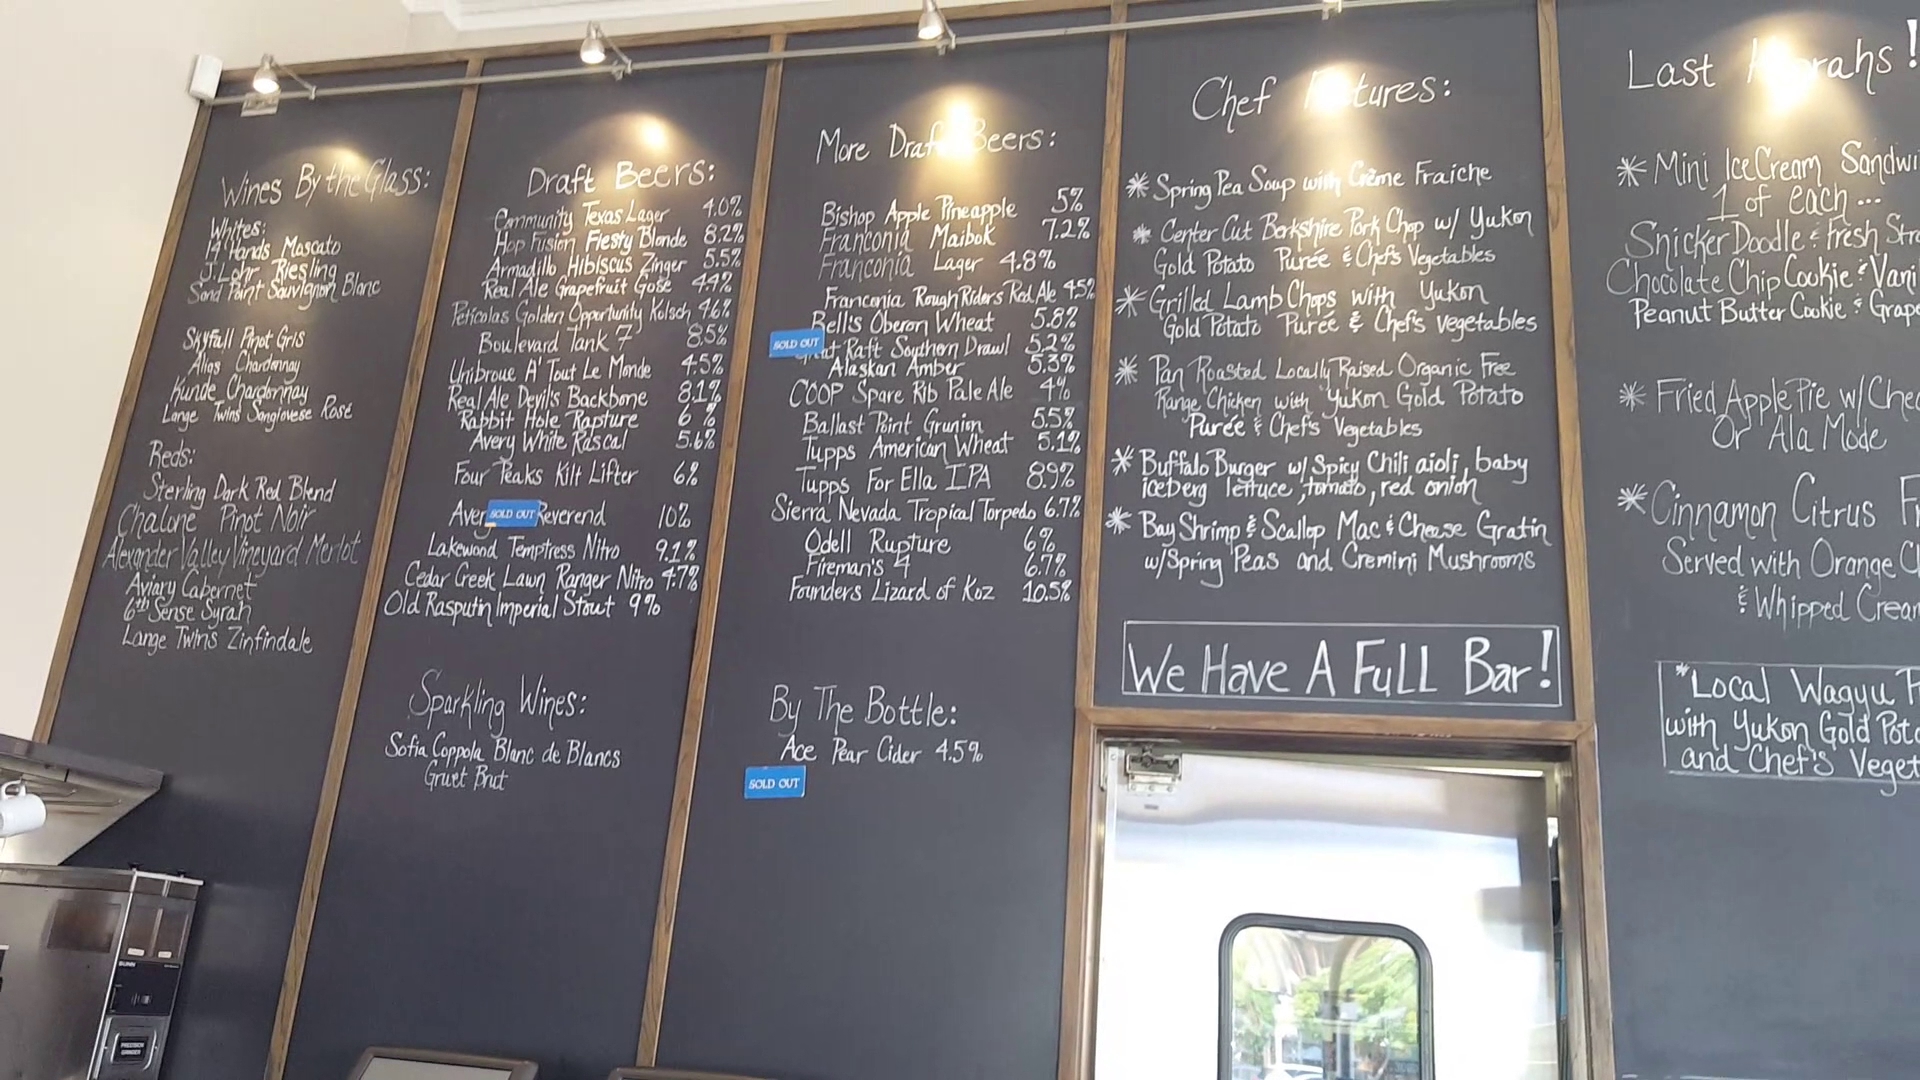 Wines By the Glass:
Whites:
14 Hands Moscato
J. Lohr Riesling
Sand Point Sauvignon Blanc
Skyfall Pinot Gris
Alias Chardonnay
Kunde Chardonnay
Lange Twins Sangiovese Rosé
Reds:
Sterling Dark Red Blend
Chalone Pinot Noir
Alexander Valley Vineyard Merlot
Aviary Cabernet
6th Sense Syrah
Lange Twins Zinfindale
Draft Beers:
Community Texas Lager 4.0%
Hop Fusion Fiesty Blonde 8.2%
Armadillo Hibiscus Zinger 5.5%
Real Ale Grapefruit Gose 4.4%
Peticolas Golden Opportunity Kolsch 4.6%
Boulevard Tank 7 8.5%
Unibroue A' Tout Le Monde 4.5%
Real Ale Devil's Backbone 8.1%
Rabbit Hole Rapture 6%
Avery White Rascal 5.6%
Four Peaks Kilt Lifter 6%
SOLD OUT Reverend 10%
Lakewood Temptress Nitro 9.1%
Cedar Creek Lawn Ranger Nitro 4.7%
Old Rasputin Imperial Stout 9%
Sparkling Wines:
Sofia Coppola Blanc de Blancs
Gruet Brut
More Draft Beers:
Bishop Apple Pineapple 5%
Franconia Maibok 7.2%
Franconia Lager 4.8%
Franconia Rough Riders Red Ale 4.5%
Bell's Oberon Wheat 5.8%
SOLD OUT Raft Southern Drawl 5.2%
Alaskan Amber 5.3%
COOP Spare Rib Pale Ale 4%
Ballast Point Grunion 5.5%
Tupps American Wheat 5.1%
Tupps For Ella IPA 8.9%
Sierra Nevada Tropical Torpedo 6.7%
Odell Rupture 6%
Fireman's 4 6.7%
Founders Lizard of Koz 10.5%
By The Bottle:
Ace Pear Cider 4.5%
SOLD OUT
Chef
* Spring Pea Soup with Crème Fraiche
* Center Cut Berkshire Pork Chop w/ Yukon
Gold Potato Purée & Chef's Vegetables
* Grilled Lamb Chops with Yukon
Gold Potato Purée & Chef's Vegetables
* Pan Roasted Locally Raised Organic Free
Range Chicken with Yukon Gold Potato
Purée & Chef's Vegetables
* Buffalo Burger w/ Spicy Chili aioli, baby
iceberg lettuce, tomato, red onion
* Bay Shrimp & Scallop Mac & Cheese Gratin
w/ Spring Peas and Cremini Mushrooms
We Have A Full Bar!
Last
* Mini Ice Cream
1 of each...
Snicker Doodle & Fresh
Chocolate Chip Cookie &
Peanut Butter Cookie &
* Fried Apple Pie w/
Or Ala Mode
* Cinnamon Citrus
Served with Orange
& Whipped
*Local Wagyu
with Yukon Gold
and Chef's
BUNN
PRECISION